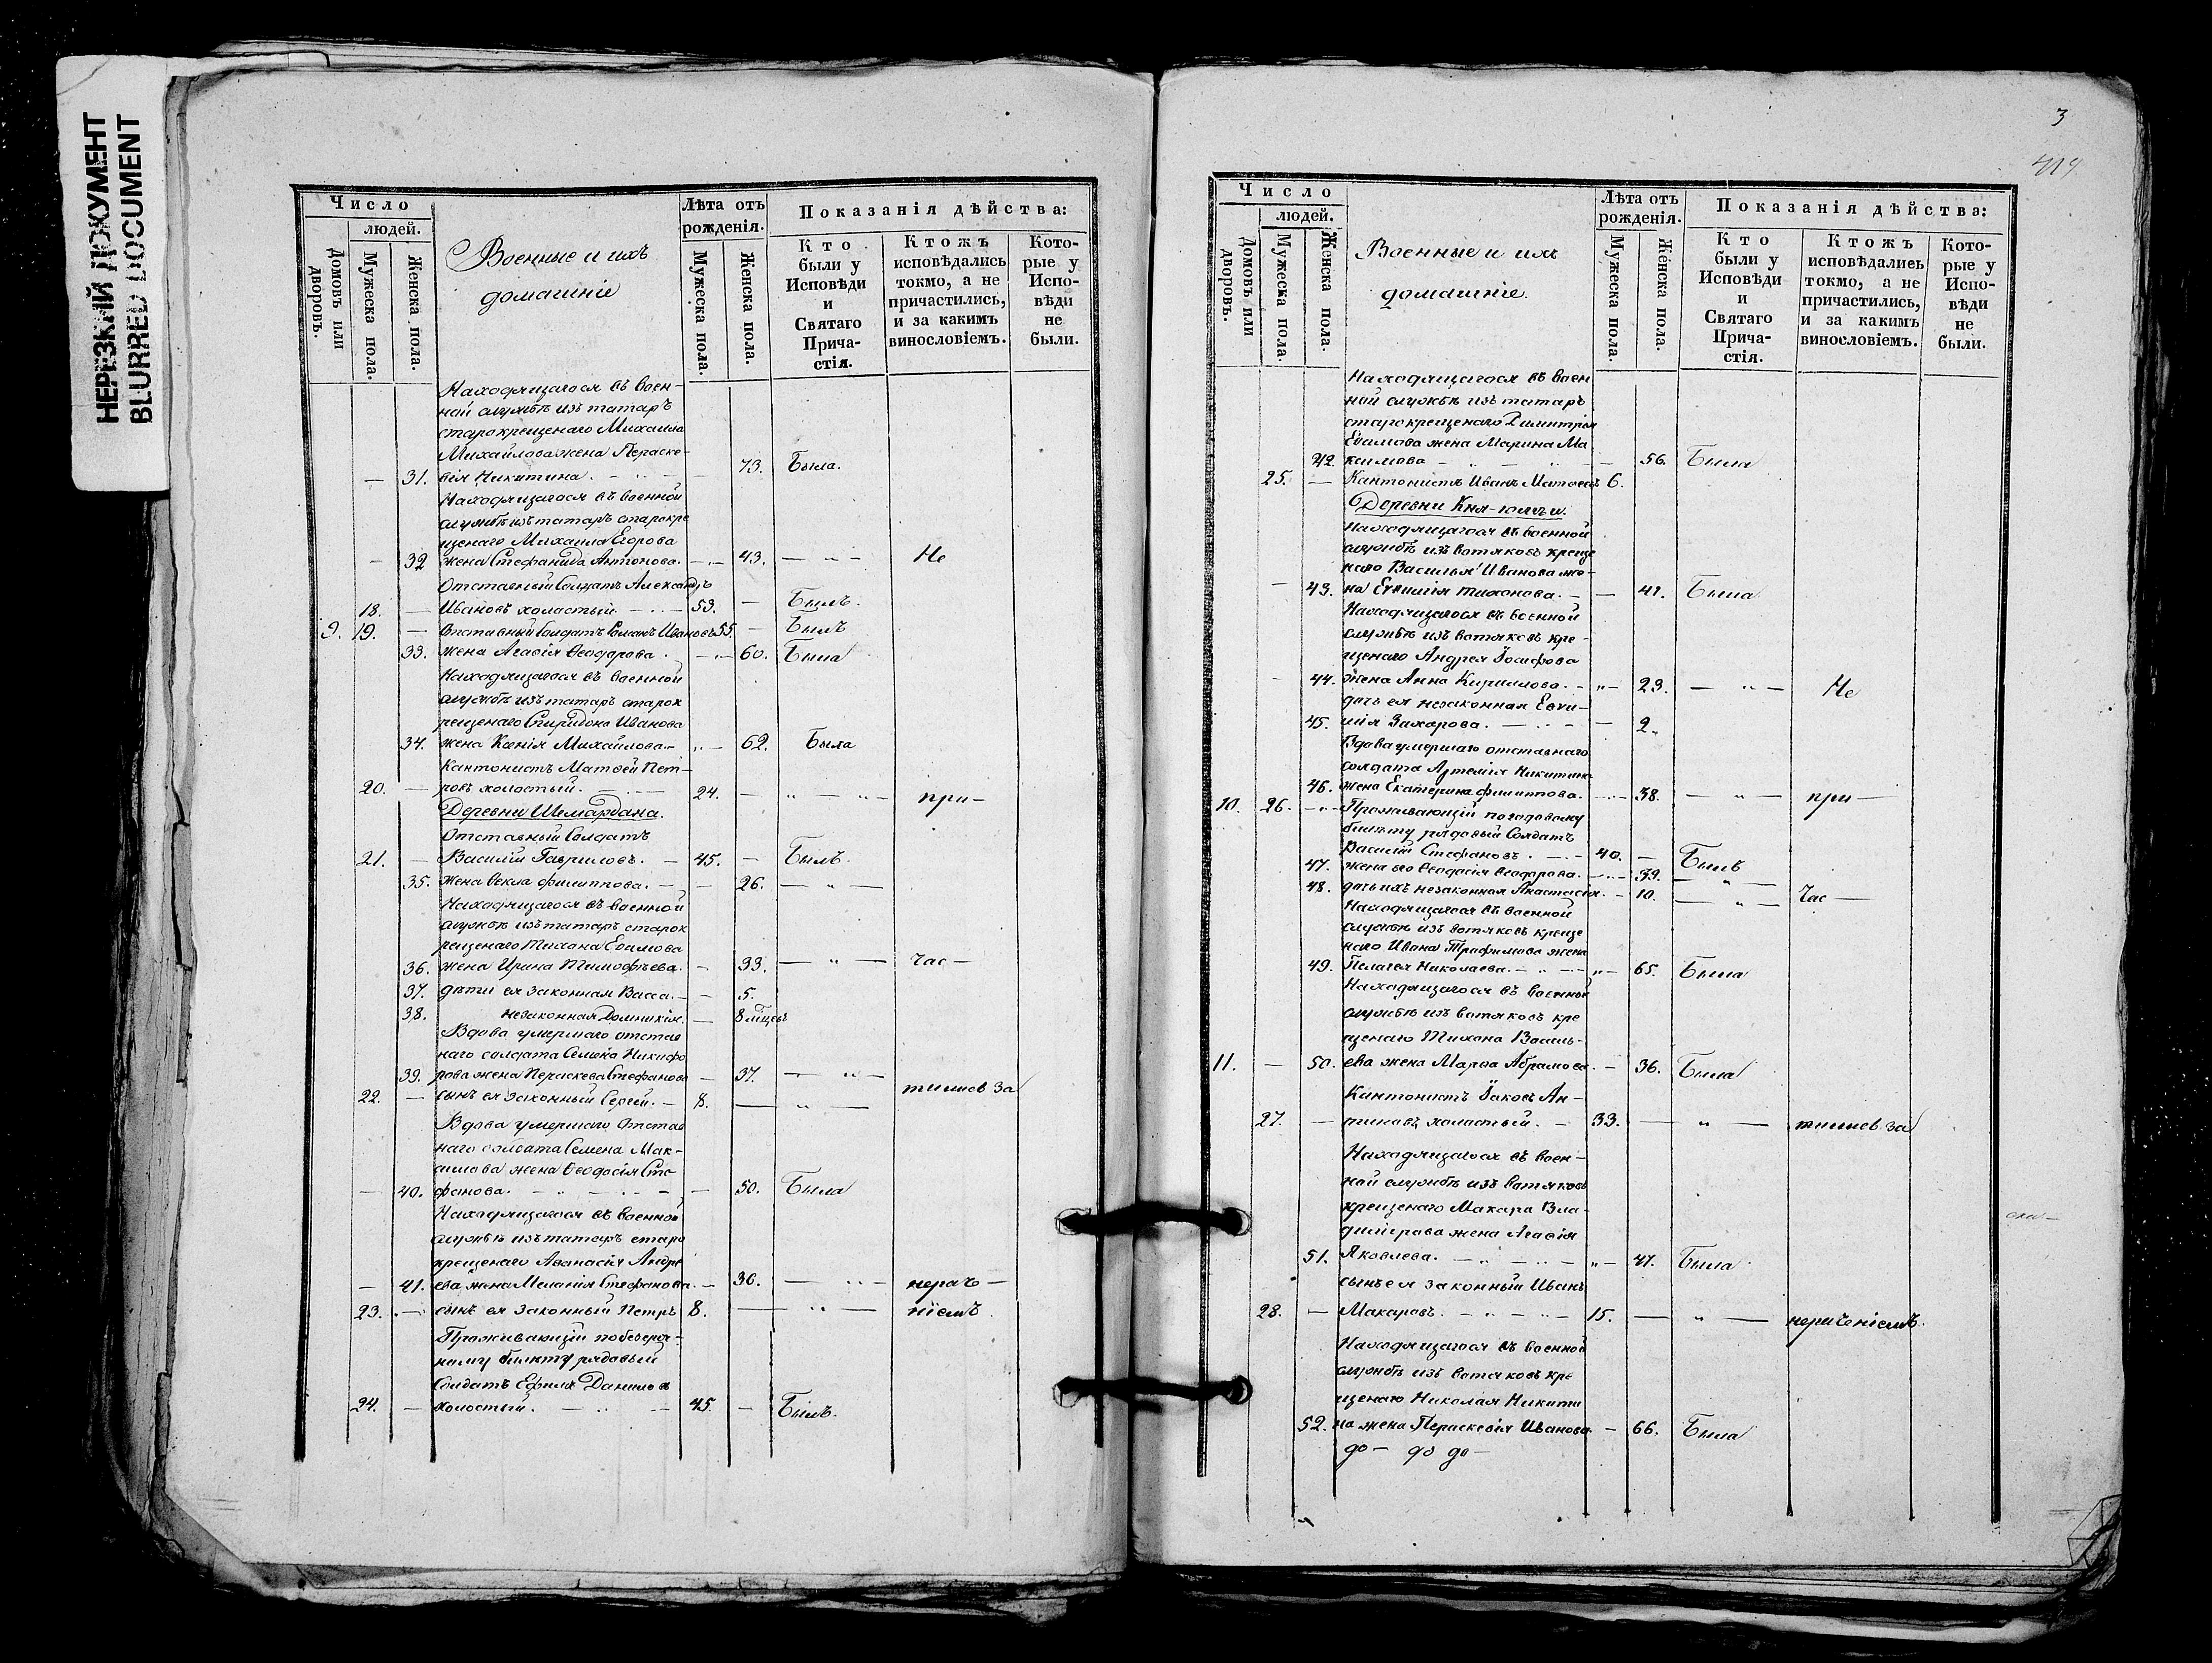 НЕРЕЗКИЙ ДОКУМЕНТ
BLURRED DOCUMENT
Число
людей.
Домовъ или дворовъ.
Мужеска пола.
Женска пола.
Военные и ихъ
домашніе
Лѣта отъ рожденія.
Мужеска пола.
Женска пола.
Показанія дѣйства:
Кто были у Исповѣди и Святаго Прича-стія.
Ктожъ исповѣдались токмо, а не причастились, и за какимъ винословіемъ.
Кото-рые у Испо-вѣди не были.
Находящагося въ воен-
ной службѣ изъ татаръ
старокрещенаго Михаила
Михайлова жена Параске-
— 31. вія Никитина. — 73. Была.
Находящагося въ военной
службѣ изъ татаръ старокре
щенаго Михаила Егорова
— 32 жена Стефанида Антонова. — 43. — „ — Не
Отставный Солдатъ Александръ
18. — Ивановъ холостый. — 53. — Былъ.
9. 19. — Отставный Солдатъ Романъ Ивановъ 55. — Былъ
33. жена Агафія Ѳеодорова. — 60. Была
Находящагося въ военной
службѣ изъ татаръ старок
рещенаго Спиридона Иванова
34. жена Ксенія Михайлова. — „ — 62. Была
Кантонистъ Матѳей Пет-
20. — ровъ холостый. — 24. — „ — „ — при —
Деревни Шемардана.
Отставный Солдатъ
21. — Василій Гавриловъ. — 45. — Былъ.
35. жена Ѳекла Филиппова. — — 26. — „ —
Находящагося въ военной
службѣ изъ татаръ старок
рещенаго Тихона Ефимова
36. жена Ирина Тимофѣева. — 33. — „ — час —
37. дѣти ея законная Васса. — — 5.
38. незаконная Домникія. — 8 мѣцевъ
Вдова умершаго отстав
наго солдата Семена Никифо
39. рова жена Параскева Стефанова — 37. — „ —
22. — сынъ ея законный Сергей. — 8. — „ — тившись за
Вдова умершаго Отстав
наго солдата Семена Мак-
симова жена Ѳеодосія Сте
— 40. фанова. — „ — — 50. Была
Находящагося въ военной
службѣ изъ татаръ старо
крещенаго Аѳанасія Андре
— 41. ева жена Меланія Стефанова. — 36. — „ — нерач —
23. — сынъ ея законный Петръ 8. — „ — ніемъ.
Проживающій по безсроч-
ному билету рядовый
Солдатъ Ефимъ Даниловъ
24. — холостый. — „ — 45. — Былъ.
3
419
Число
людей.
Домовъ или дворовъ.
Мужеска пола.
Женска пола.
Военные и ихъ
домашніе.
Лѣта отъ рожденія.
Мужеска пола.
Женска пола.
Показанія дѣйства:
Кто были у Исповѣди и Святаго Прича-стія.
Ктожъ исповѣдались токмо, а не причастились, и за какимъ винословіемъ.
Кото-рые у Испо-вѣди не были.
Находящагося въ воен
ной службѣ изъ татаръ
старокрещенаго Димитрія
Ефимова жена Марина Ма
42. ксимова — „ — „ — 56. Была
25. — Кантонистъ Иванъ Матѳеевъ 6.
Деревни Кня-юмьи.
Находящагося въ военной
службѣ изъ вотяковъ креще
наго Василья Иванова же-
— 43. на Евѳимія Тихонова. — — 41. Была
Находящагося въ военной
службѣ изъ вотяковъ кре-
щенаго Андрея Іосифова
— 44. жена Анна Кириллова. — „ — 23. — „ — Не
дочь ея незаконная Евѳи-
45. мія Захарова. — — 2.
Вдова умершаго отставнаго
солдата Артемія Никитина
46. жена Екатерина Филиппова. — 38. — „ — при —
10. 26. — Проживающій по годовому
билету рядовый Солдатъ
Василій Стефановъ. — 40. — Былъ
47. жена его Ѳеодосія Ѳеодорова. — 39. — „ —
48. дочь ихъ незаконная Анастасія. — 10. — „ — час —
Находящагося въ военной
службѣ изъ вотяковъ креще
наго Ивана Трофимова жена
49. Пелагея Николаева. — „ — „ — 65. Была
Находящагося въ военной
службѣ изъ вотяковъ кре
щенаго Тихона Василь-
11. — 50. ева жена Марѳа Абрамова. — 36. Была
Кантонистъ Іаковъ Ан-
27. — типовъ холостый. — 33. — „ — тившись за
Находящагося въ воен-
ной службѣ изъ вотяковъ
крещенаго Макара Вла-
димірова жена Агафія
51. Яковлева. — „ — „ — 47. Была
сынъ ея законный Иванъ
28. — Макаровъ. — „ — „ — 15. — „ — нераченіемъ.
Находящагося въ военной
службѣ изъ вотяковъ кре
щенаго Николая Никити
52. на жена Параскевія Иванова. — 66. Была
до — до до —